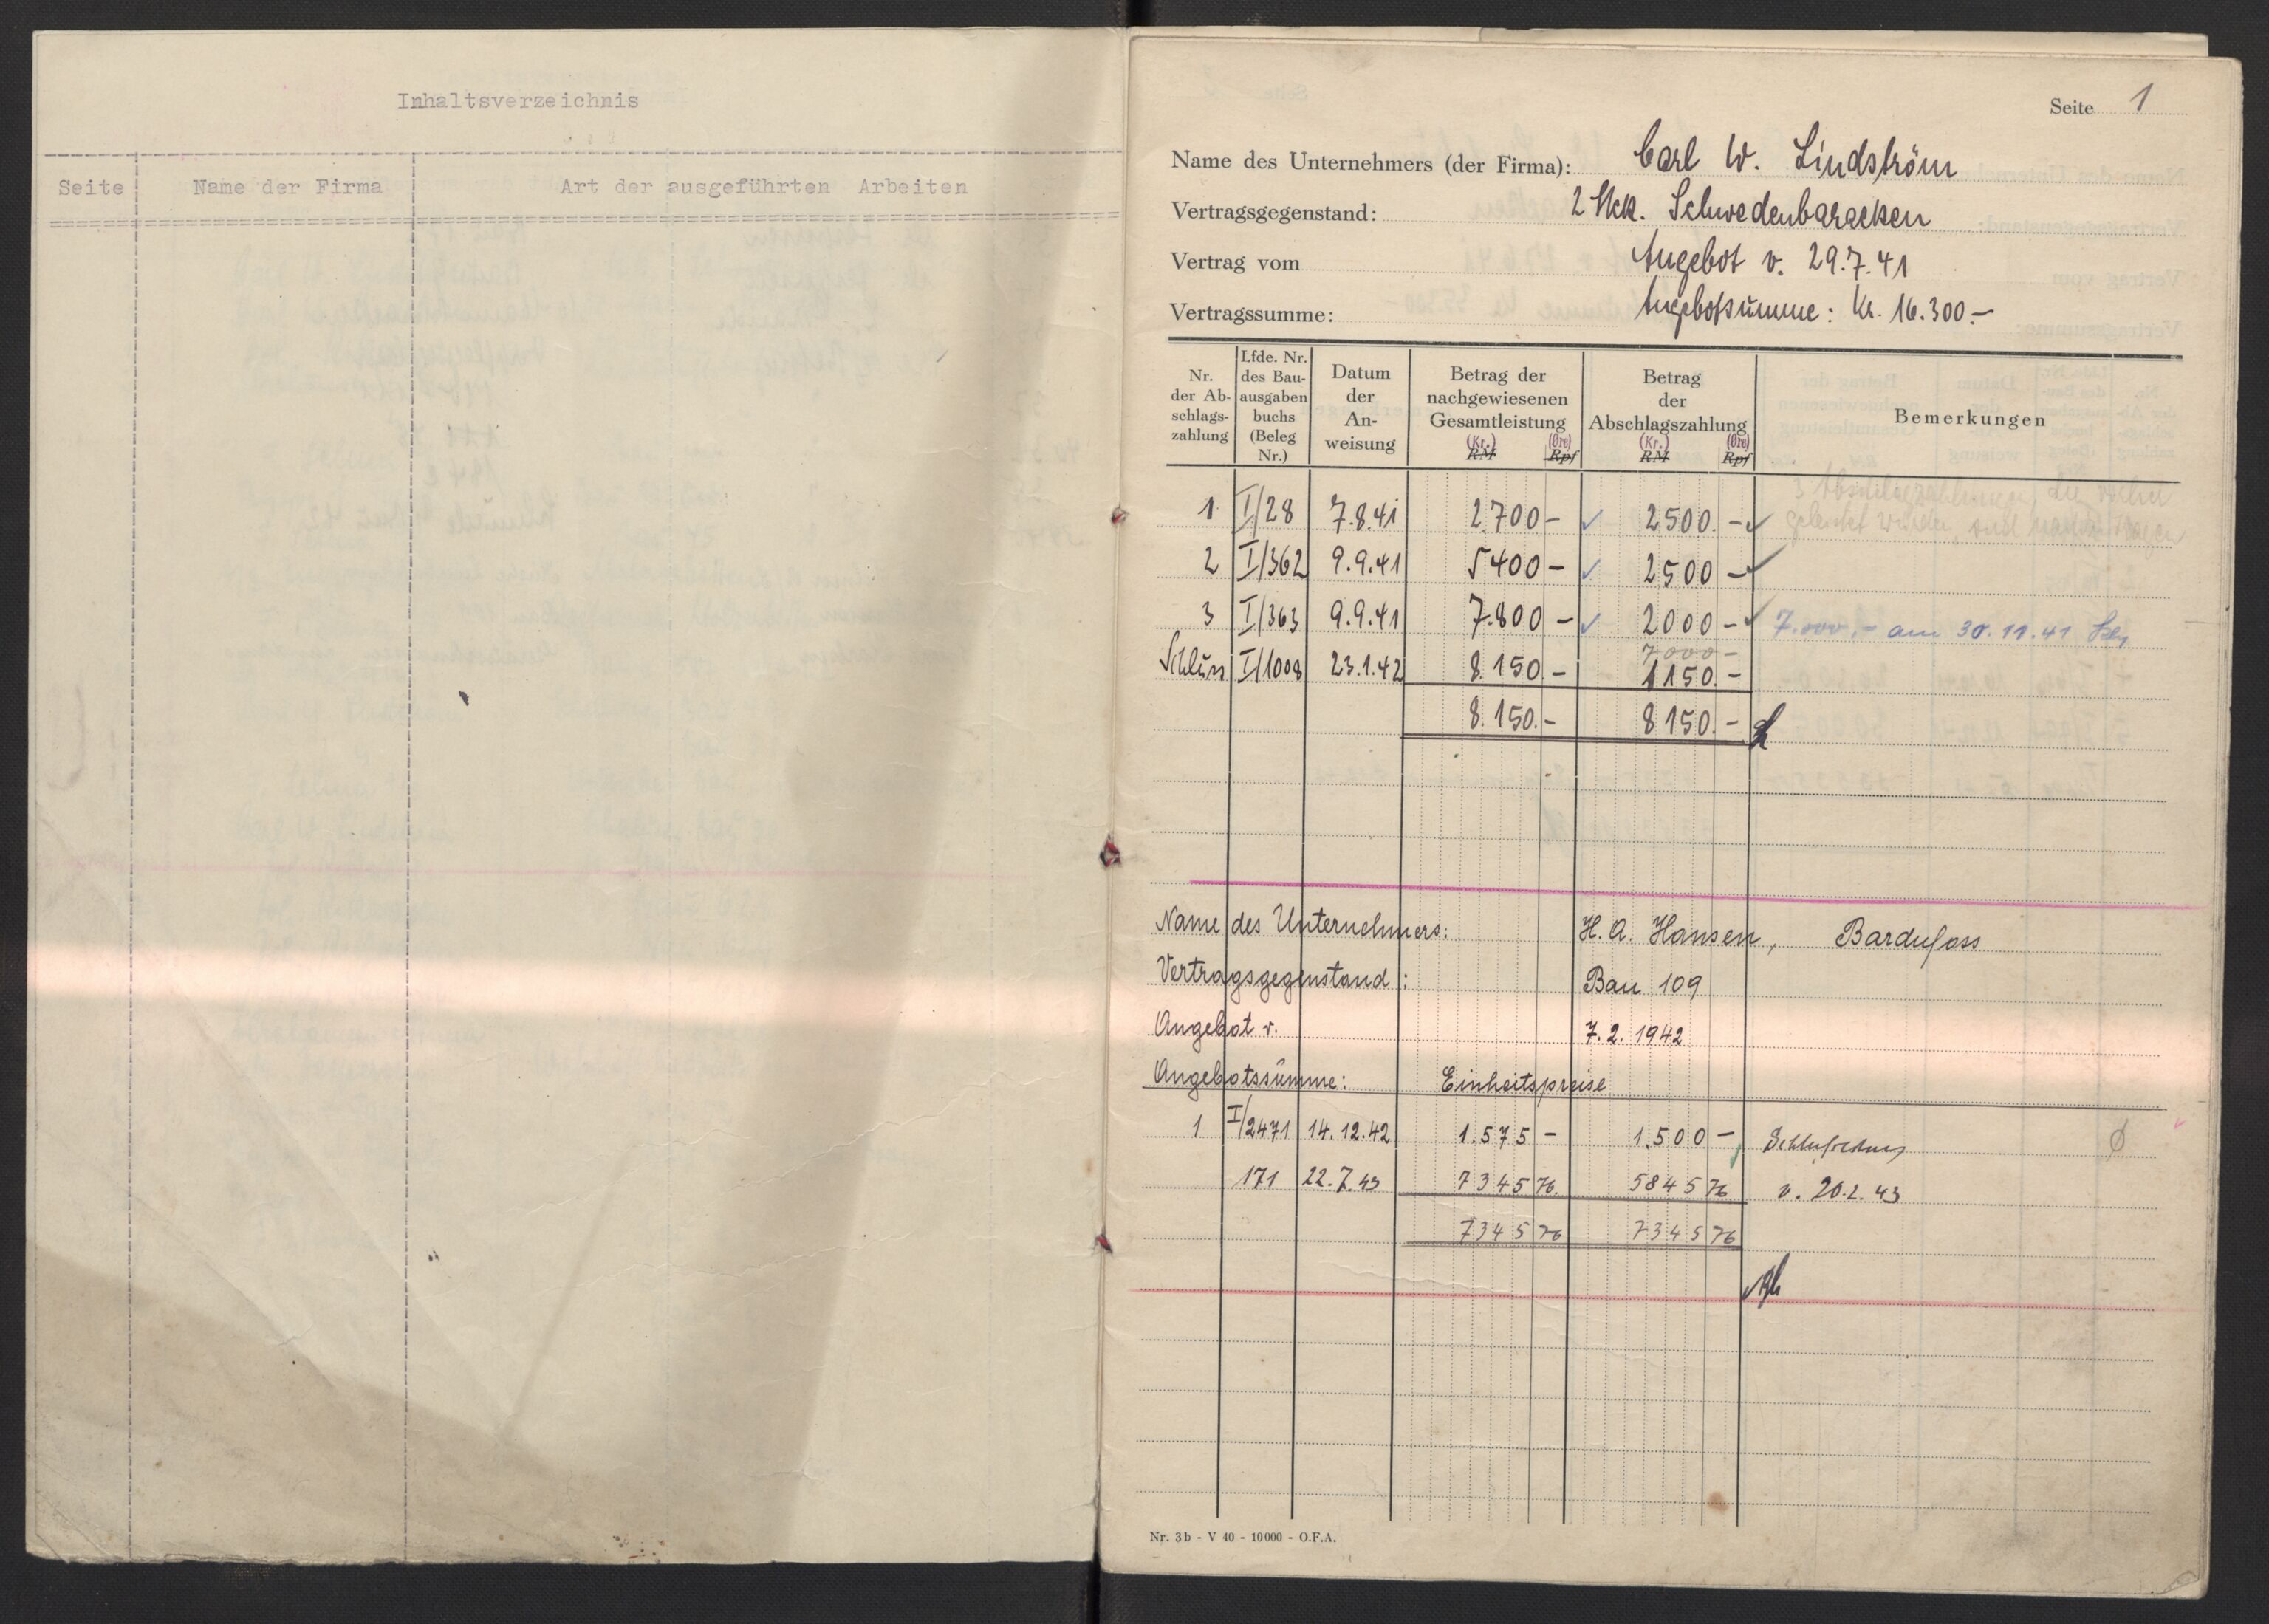 Inhaltsverzeichnis
Seite Name der Firma Art der ausgeführten Arbeiten
Seite 1
Name des Unternehmers (der Firma): Carl W. Lindström
Vertragsgegenstand: 2 Stck. Schwedenbaracken
Vertrag vom Angebot v. 29.7.41
Vertragssumme: Angebotssumme: Kr. 16.300.-
Nr. der Ab-schlags-zahlung Lfde. Nr. des Bau-ausgaben buchs (Beleg Nr.) Datum der An-weisung Betrag der nachgewiesenen Gesamtleistung (Kr.) RM (Øre) Rpf Betrag der Abschlagszahlung (Kr.) RM (Øre) Rpf Bemerkungen
3 Abschlagszahlungen, die
geleistet wurden, sind
1 I/28 7.8.41 2700 - 2500.-
2 I/362 9.9.41 5400 - 2500 -
3 I/363 9.9.41 7.800 - 2000 - 7.000.- am 30.11.41
7000 -
Schluss I/1008 23.1.42 8.150.- 1150.-
8.150.- 8150.-
Name des Unternehmers: H. A. Hansen, Bardufoss
Vertragsgegenstand: Bau 109
Angebot v. 7.2.1942
Angebotssumme: Einheitspreise
1 I/2471 14.12.42 1.575 - 1.500 - Schlußrechng
171 22.7.43 7345 76 5845 76 v. 20.2.43
7345 76 7345 76
Nr. 3b - V 40 - 10000 - O.F.A.